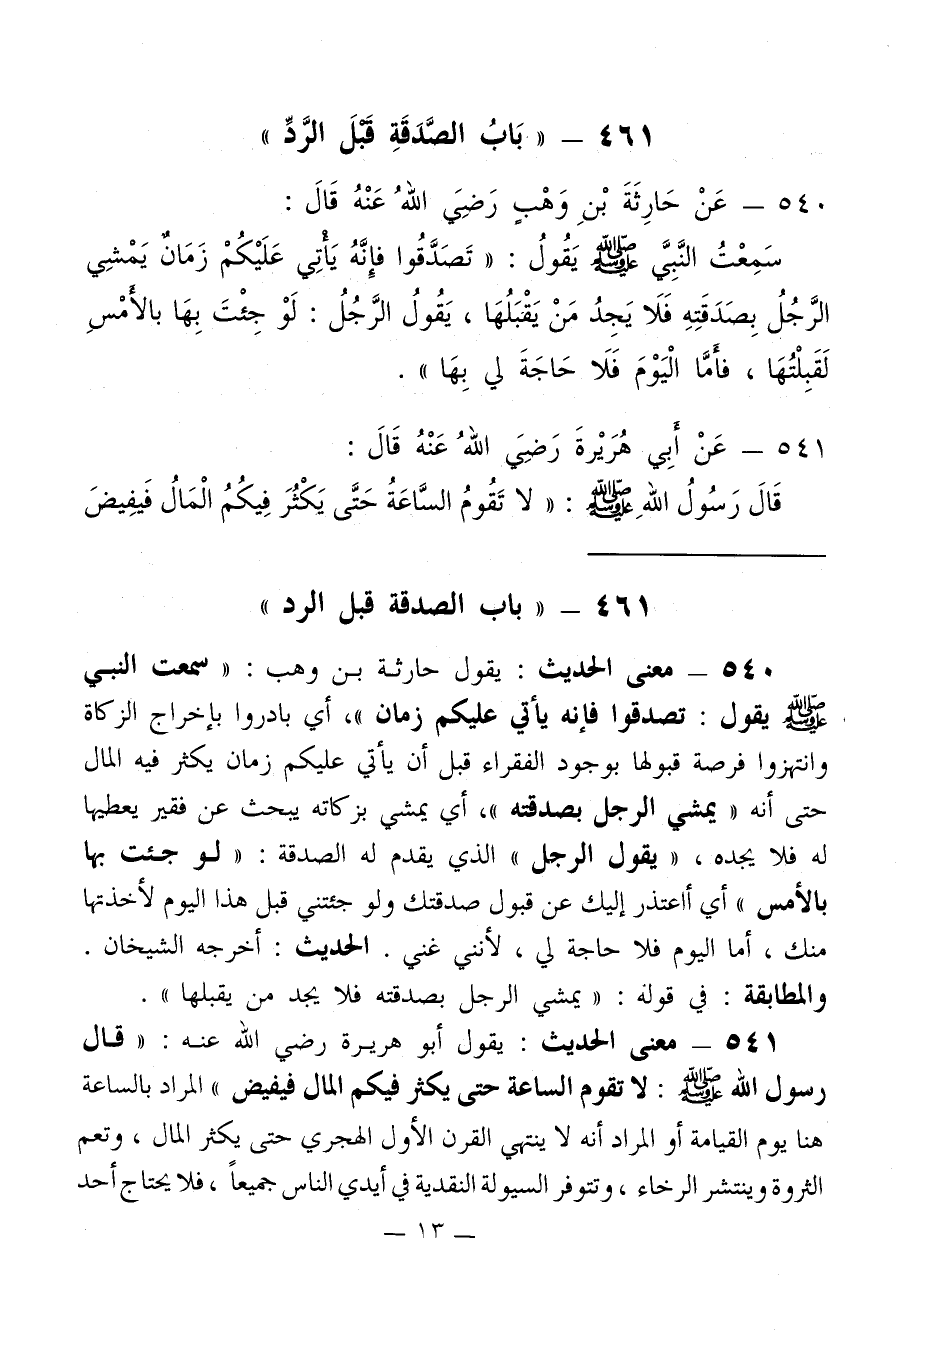 ٤٦١ ـ « بَابُ الصَّدَقَةِ قَبْلَ الرَّدِّ »
٥٤٠ ـ عَنْ حَارِثَةَ بْنِ وَهْبٍ رَضِيَ اللهُ عَنْهُ قَالَ :
سَمِعْتُ النَّبِيَّ ﷺ يَقُولُ : « تَصَدَّقُوا فإِنَّهُ يَأْتِي عَلَيْكُمْ زَمَانٌ يَمْشِي
الرَّجُلُ بِصَدَقَتِهِ فَلَا يَجِدُ مَنْ يَقْبَلُهَا ، يَقُولُ الرَّجُلُ : لَوْ جِئْتَ بِهَا بالأَمْسِ
لَقَبِلْتُهَا ، فأَمَّا الْيَوْمَ فَلَا حَاجَةَ لي بِهَا » .
٥٤١ ـ عَنْ أَبِي هُرَيْرةَ رَضِيَ اللهُ عَنْهُ قَالَ :
قَالَ رَسُولُ اللهِ ﷺ : « لا تَقُومُ السَّاعَةُ حَتَّى يَكْثُرَ فِيكُمُ الْمَالُ فَيَفِيضَ
٤٦١ ـ « باب الصدقة قبل الرد »
٥٤٠ ـ معنى الحديث : يقول حارثة بن وهب : « سمعت النبي
ﷺ يقول : تصدقوا فإنه يأتي عليكم زمان »، أي بادروا بإخراج الزكاة
وانتهزوا فرصة قبولها بوجود الفقراء قبل أن يأتي عليكم زمان يكثر فيه المال
حتى أنه « يمشي الرجل بصدقته »، أي يمشي بزكاته يبحث عن فقير يعطيها
له فلا يجده ، « يقول الرجل » الذي يقدم له الصدقة : « لو جئت بها
بالأمس » أي أاعتذر إليك عن قبول صدقتك ولو جئتني قبل هذا اليوم لأخذتها
منك ، أما اليوم فلا حاجة لي ، لأنني غني . الحديث : أخرجه الشيخان .
والمطابقة : في قوله : « يمشي الرجل بصدقته فلا يجد من يقبلها » .
٥٤١ ـ معنى الحديث : يقول أبو هريرة رضي الله عنه : « قال
رسول الله ﷺ : لا تقوم الساعة حتى يكثر فيكم المال فيفيض » المراد بالساعة
هنا يوم القيامة أو المراد أنه لا ينتهي القرن الأول الهجري حتى يكثر المال ، وتعم
الثروة وينتشر الرخاء ، وتتوفر السيولة النقدية في أيدي الناس جميعاً ، فلا يحتاج أحد
ـ ١٣ ـ